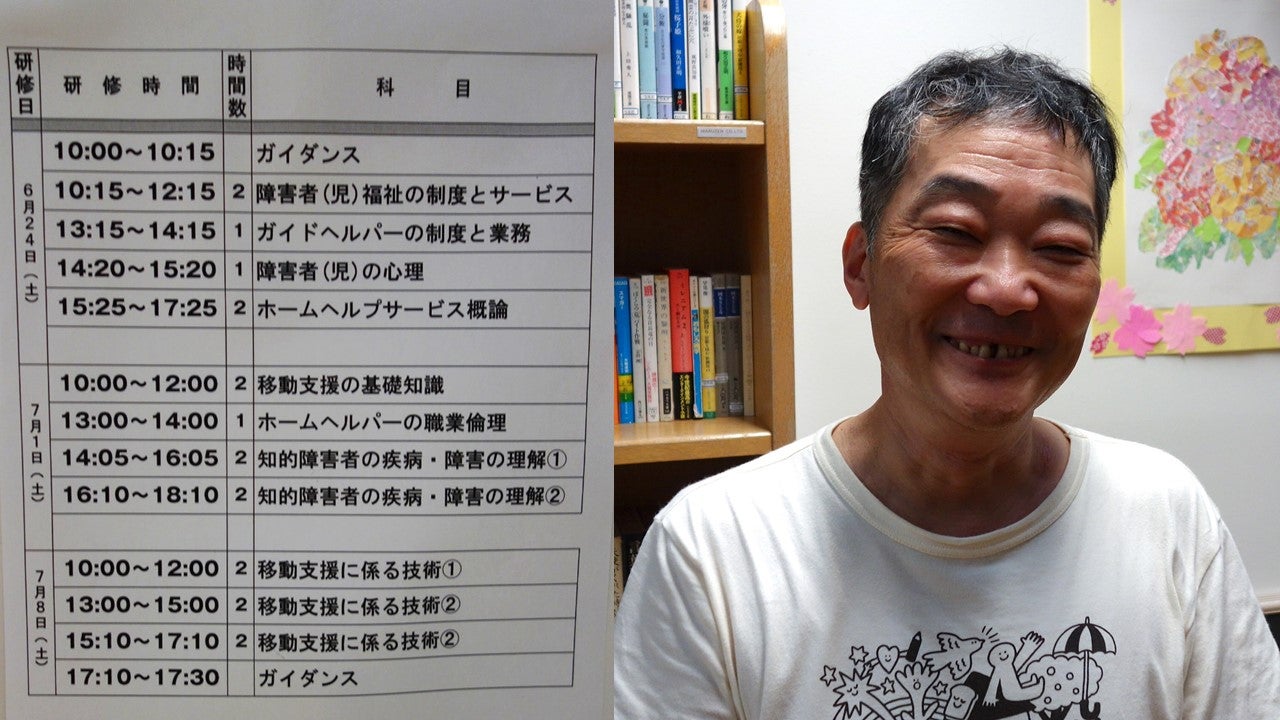 研修日 研修時間 時間数 科目
6月24日(土)
10:00~10:15 ガイダンス
10:15~12:15 2 障害者(児)福祉の制度とサービス
13:15~14:15 1 ガイドヘルパーの制度と業務
14:20~15:20 1 障害者(児)の心理
15:25~17:25 2 ホームヘルプサービス概論
7月1日(土)
10:00~12:00 2 移動支援の基礎知識
13:00~14:00 1 ホームヘルパーの職業倫理
14:05~16:05 2 知的障害者の疾病・障害の理解①
16:10~18:10 2 知的障害者の疾病・障害の理解②
7月8日(土)
10:00~12:00 2 移動支援に係る技術①
13:00~15:00 2 移動支援に係る技術②
15:10~17:10 2 移動支援に係る技術②
17:10~17:30 ガイダンス
MARUZEN CO.,LTD.